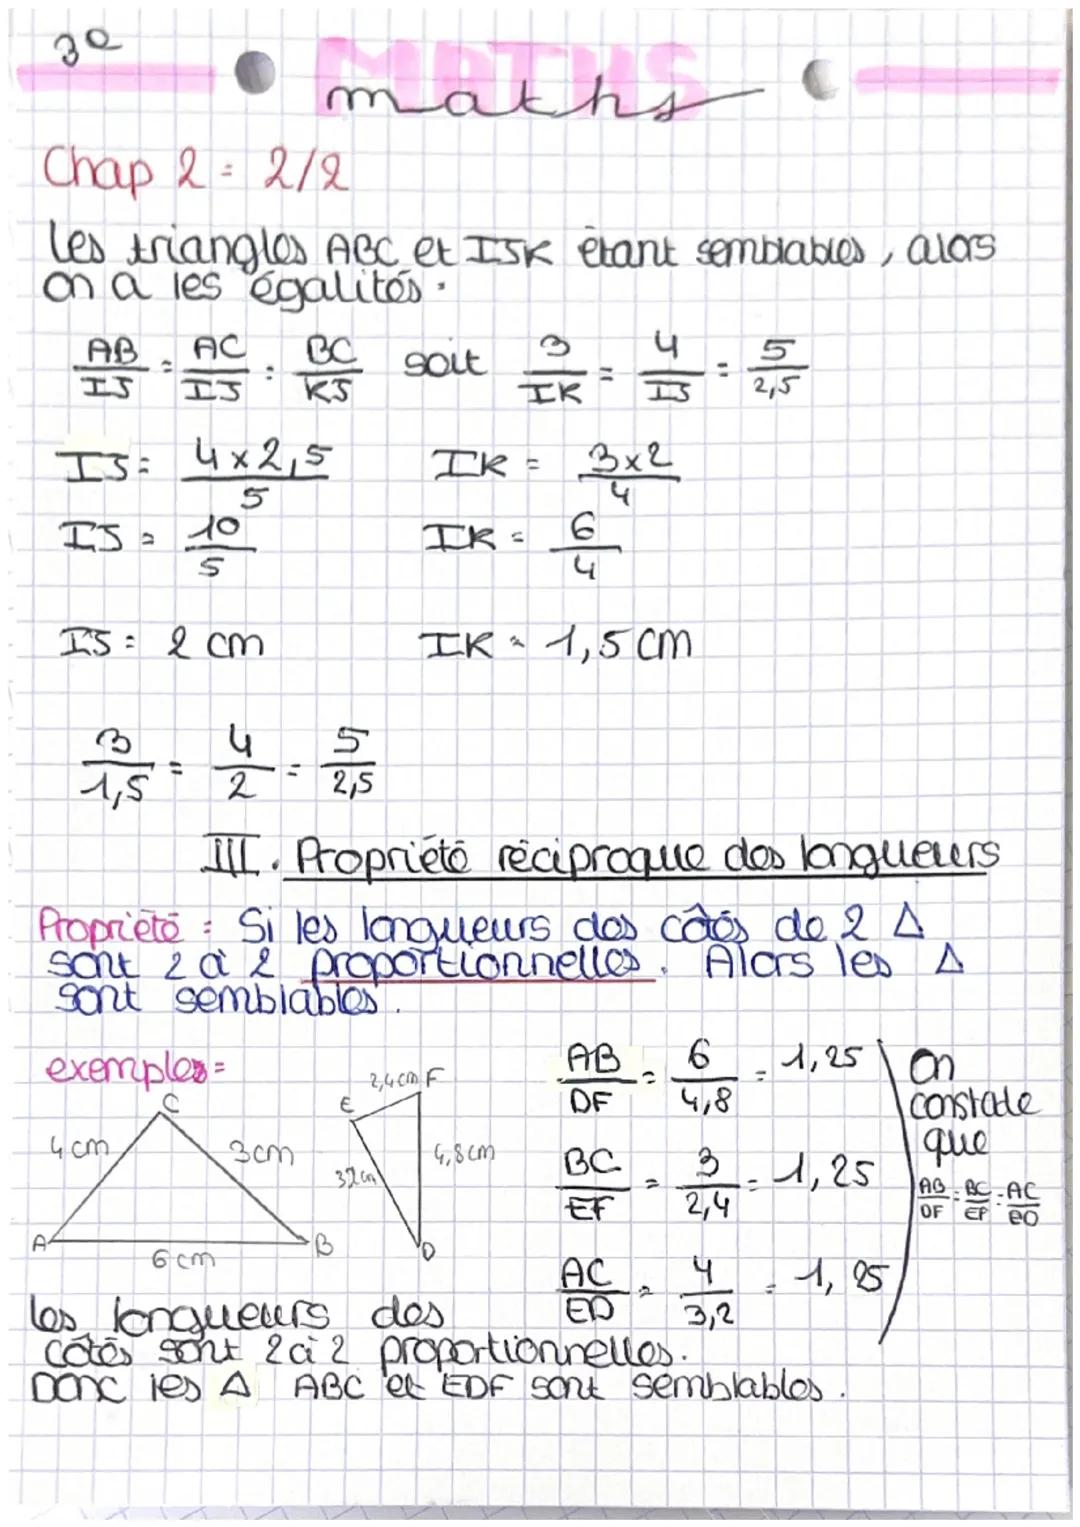 3e
MATHS
maths
Chap 2 = 2/2
Les triangles ABC et IJK étant semblables, alors
on a les égalités.
AB/IJ = AC/IJ = BC/KJ soit 3/IK = 4/IJ = 5/2,5
IJ = 4 x 2,5/5 IK = 3x2/4
IJ = 10/5 IK = 6/4
IJ = 2 cm IK = 1,5 cm
3/1,5 = 4/2 = 5/2,5
III. Propriété réciproque des longueurs
Propriété : Si les longueurs des côtés de 2 Δ
sont 2 à 2 proportionnelles. Alors les Δ
sont semblables.
exemples =
C
4 cm
3 cm
A
B
6 cm
2,4 cm F
E
4,8 cm
3,2 cm
D
AB/DF = 6/4,8 = 1,25
BC/EF = 3/2,4 = 1,25
AC/ED = 4/3,2 = 1,25
On
constate
que
AB/DF = BC/EF = AC/ED
Les longueurs des
côtés sont 2 à 2 proportionnelles.
Donc les Δ ABC et EDF sont semblables.